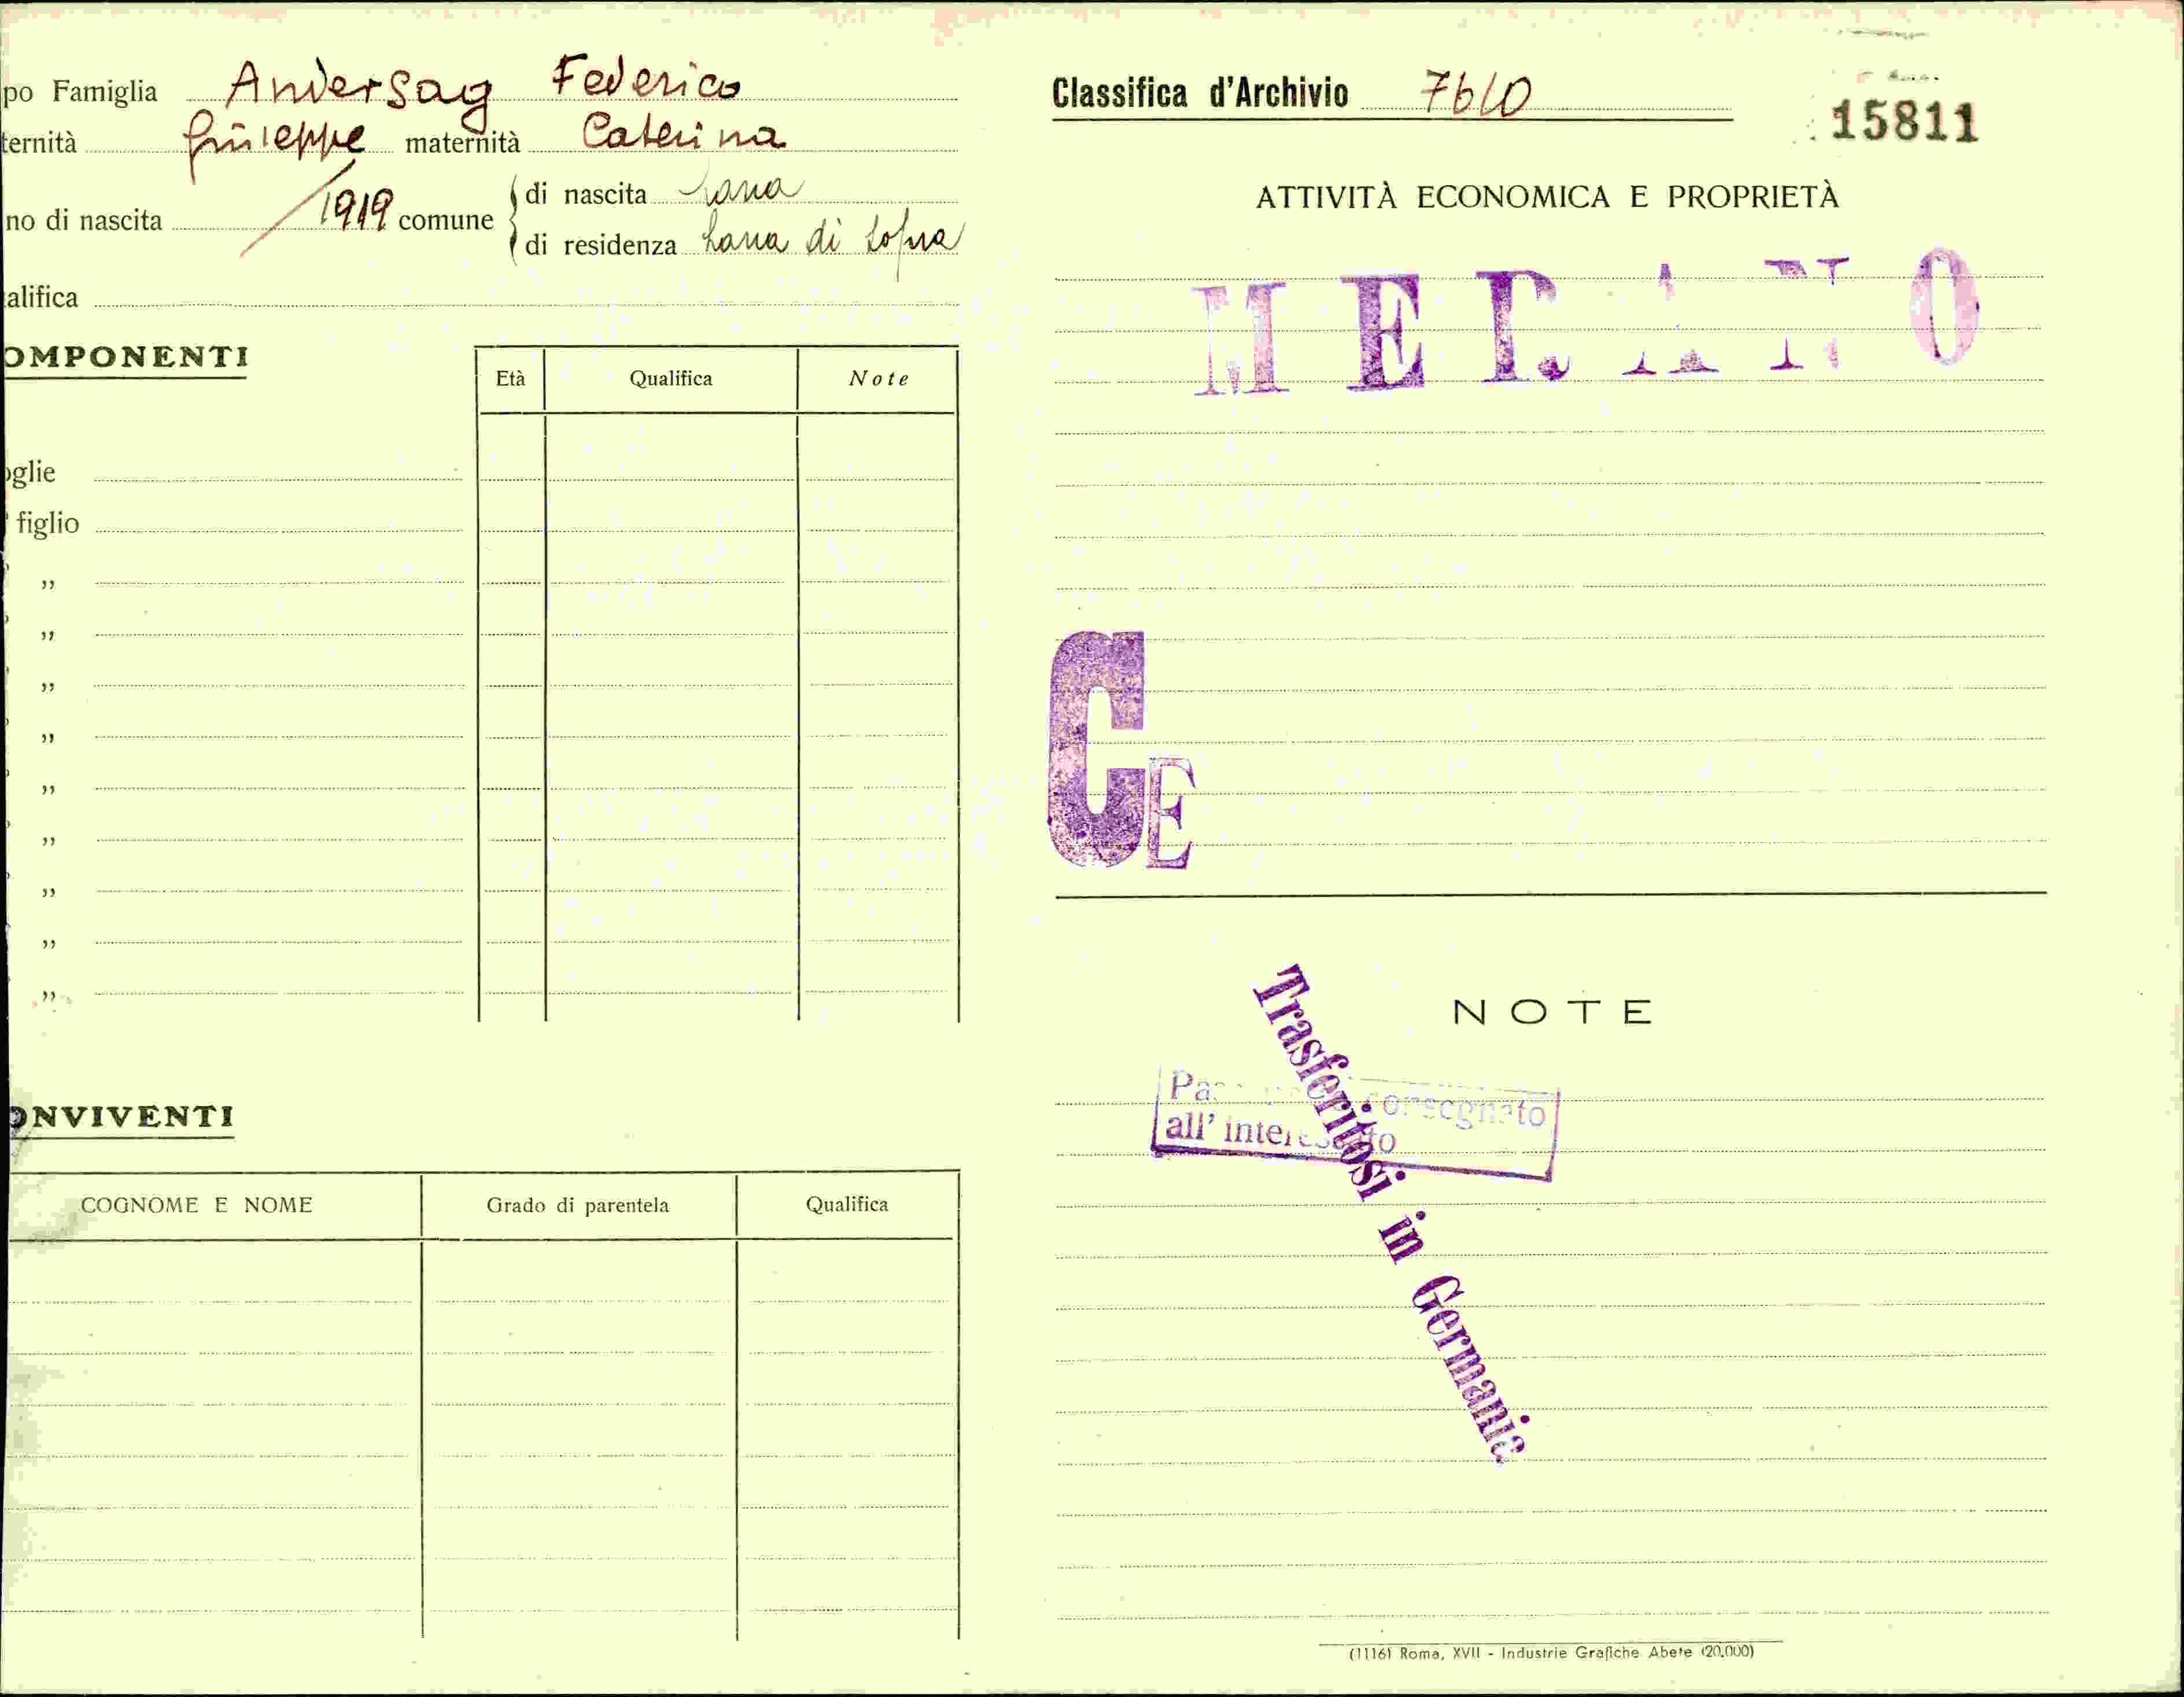 po Famiglia Andersag Federico
ternità Giuseppe maternità Caterina
no di nascita /1919 comune di nascita Lana
di residenza Lana di Sopra
alifica
OMPONENTI
Età Qualifica Note
oglie
figlio
"
"
"
"
"
"
"
"
"
ONVIVENTI
COGNOME E NOME Grado di parentela Qualifica
Classifica d'Archivio
15811
ATTIVITÀ ECONOMICA E PROPRIETÀ
MERANO
CE
NOTE
consegnato
all' interessato
Trasferitosi in Germania
(1116) Roma, XVII - Industrie Grafiche Abete (20.000)